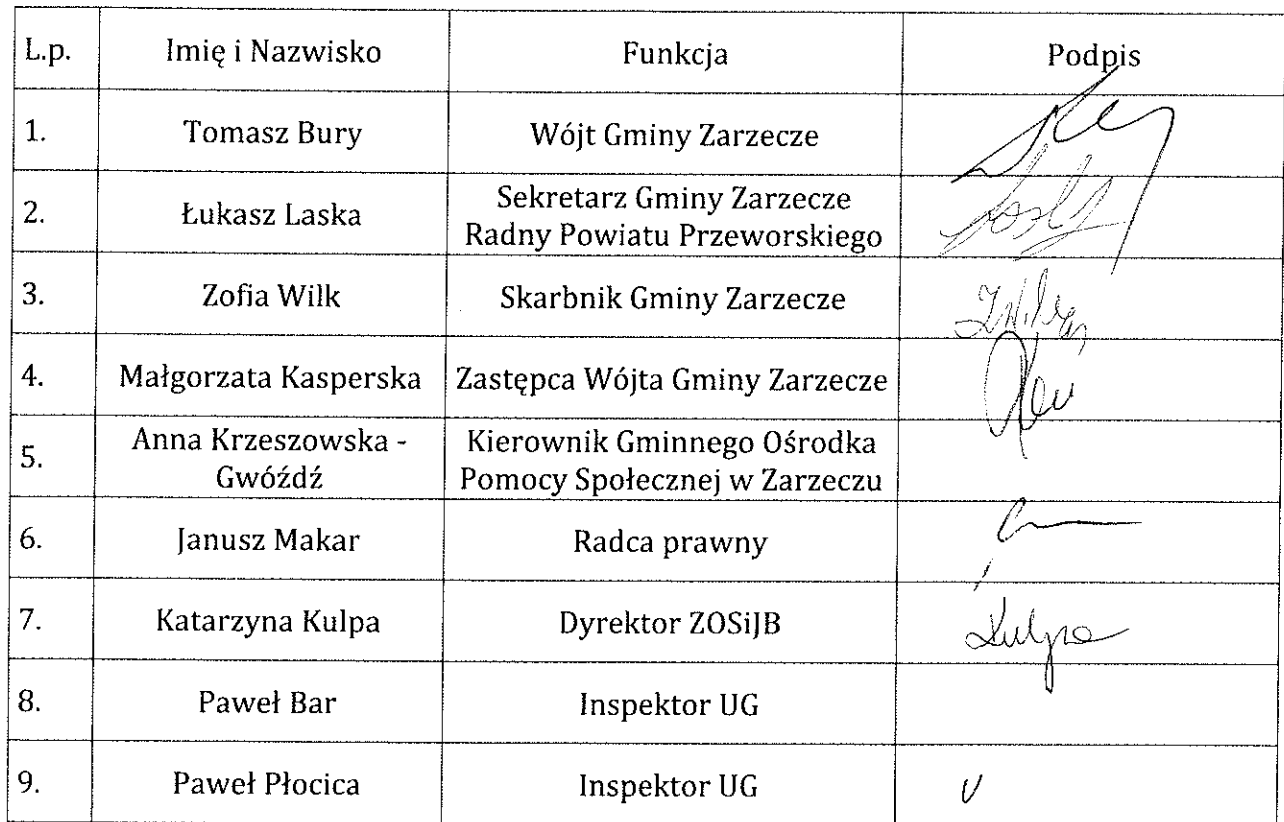 L.p. Imię i Nazwisko Funkcja Podpis
1. Tomasz Bury Wójt Gminy Zarzecze
2. Łukasz Laska Sekretarz Gminy Zarzecze
Radny Powiatu Przeworskiego
3. Zofia Wilk Skarbnik Gminy Zarzecze
4. Małgorzata Kasperska Zastępca Wójta Gminy Zarzecze
5. Anna Krzeszowska - Kierownik Gminnego Ośrodka
Gwóźdź Pomocy Społecznej w Zarzeczu
6. Janusz Makar Radca prawny
7. Katarzyna Kulpa Dyrektor ZOSiJB Kulpa
8. Paweł Bar Inspektor UG
9. Paweł Płocica Inspektor UG